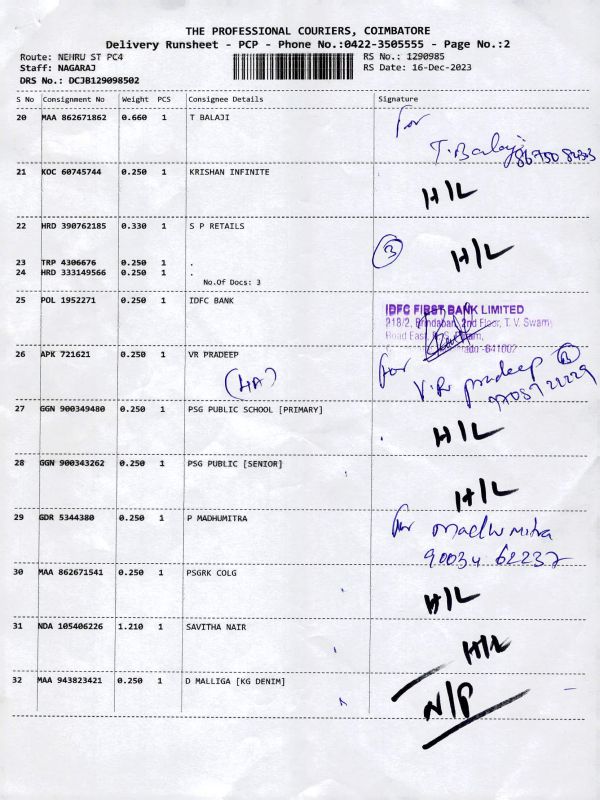 THE PROFESSIONAL COURIERS, COIMBATORE
Delivery Runsheet - PCP - Phone No.:0422-3505555 - Page No.:2
Route: NEHRU ST PC4 RS No.: 1290985
Staff: NAGARAJ RS Date: 16-Dec-2023
DRS No.: DCJB129098502
S No Consignment No Weight PCS Consignee Details Signature
20 MAA 862671862 0.660 1 T BALAJI For
T. Balaji
21 KOC 60745744 0.250 1 KRISHAN INFINITE
H/L
22 HRD 390762185 0.330 1 S P RETAILS
3 H/L
23 TRP 4306676 0.250 1 .
24 HRD 333149566 0.250 1 .
No.Of Docs: 3
25 POL 1952271 0.250 1 IDFC BANK
IDFC FIRST BANK LIMITED
218/2, Brindaban, 2nd Floor, T. V. Swamy
Road East,
-641002
26 APK 721621 0.250 1 VR PRADEEP For
V.R pradeep
27 GGN 900349480 0.250 1 PSG PUBLIC SCHOOL [PRIMARY]
H/L
28 GGN 900343262 0.250 1 PSG PUBLIC [SENIOR]
H/L
29 GDR 5344380 0.250 1 P MADHUMITRA For Madhumitra
90034 62237
30 MAA 862671541 0.250 1 PSGRK COLG
H/L
31 NDA 105406226 1.210 1 SAVITHA NAIR
H/L
32 MAA 943823421 0.250 1 D MALLIGA [KG DENIM]
N/P